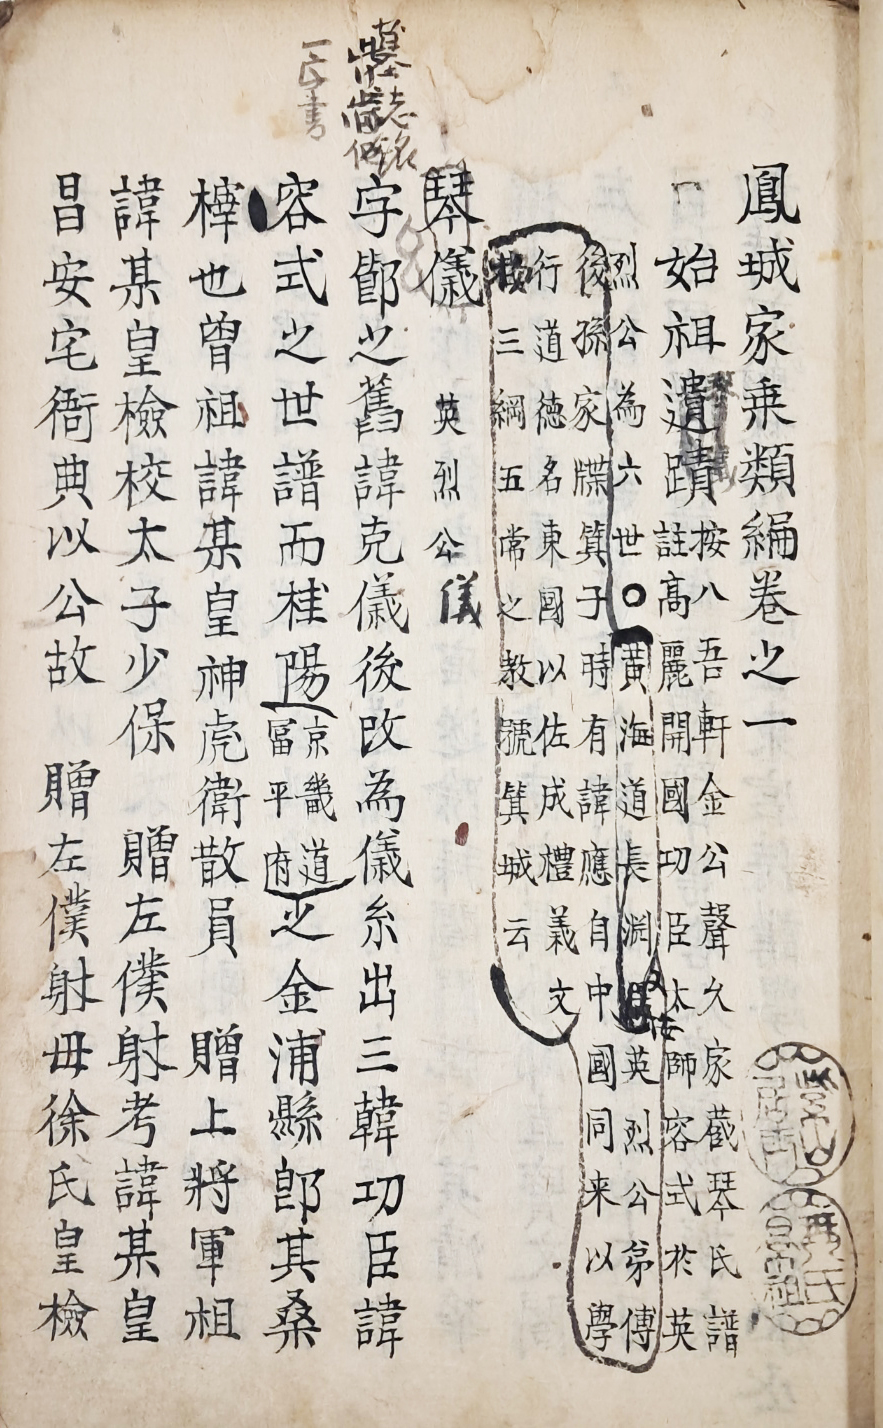 鳳城家乗類編卷之一
始祖遺蹟
按八吾軒金公聲久家蔵琴氏譜
註高麗開國功臣太師容式於英
烈公為六世○黃海道長淵英烈公苐傳
後孫家牒箕子時有諱應自中國同来以學
行道德名東國以佐成禮義文
按三綱五常之教號箕城云
琴儀 英烈公儀
字節之舊諱克儀後改為儀系出三韓功臣諱
容式之世譜而桂陽
京畿道
冨平府
之金浦縣即其桑
梓也曾祖諱某皇神虎衛散員 贈上將軍祖
諱某皇檢校太子少保 贈左僕射考諱某皇
昌安宅衙典以公故 贈左僕射毋徐氏皇檢
墓志銘